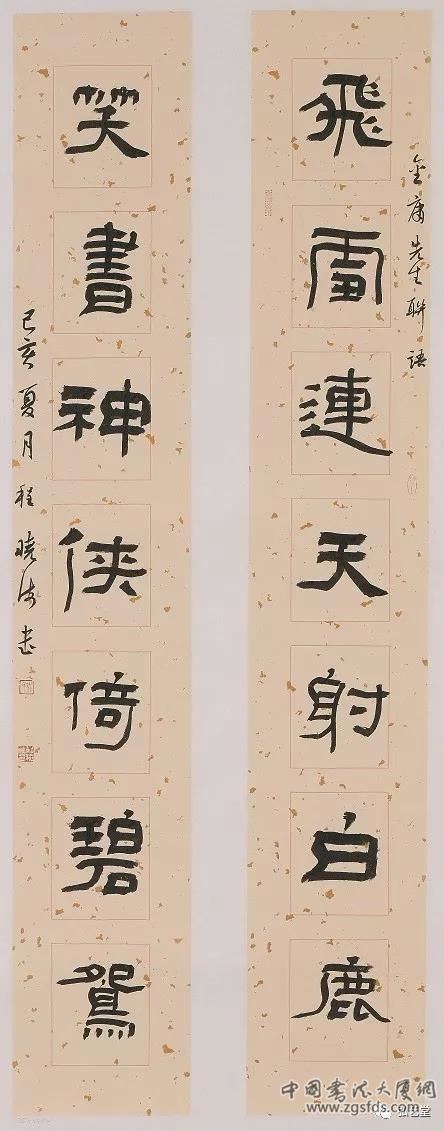 飛雪連天射白鹿
金庸先生聯語
笑書神俠倚碧鴛
己亥夏月程曉海書
中國書法大厦網
www.zgsfds.com